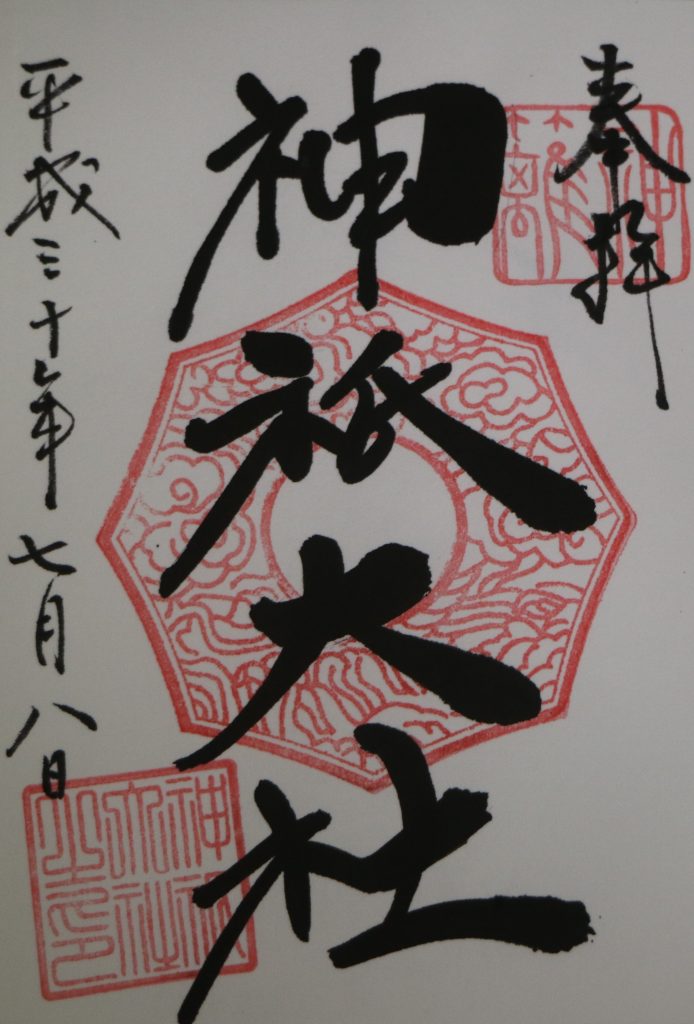 奉拝
神祇大社
平成三十年七月八日
神祇
大社
之印